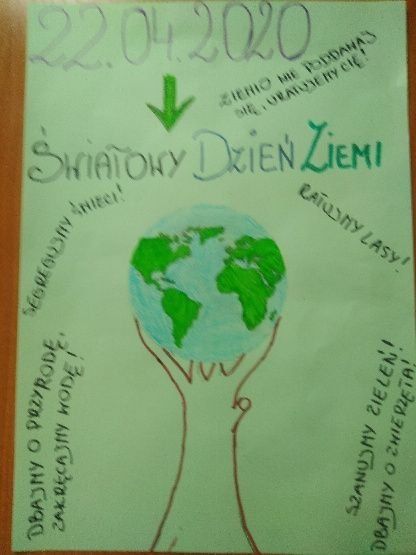 22.04.2020
ZIEMIO NIE PODDAWAJ
SIĘ, URATUJEMY CIĘ!
ŚWIATOWY DZIEŃ ZIEMI
SEGREGUJMY ŚMIECI!
RATUJMY LASY!
DBAJMY O PRZYRODĘ,
ZAKRĘCAJMY WODĘ!
SZANUJMY ZIELEŃ!
DBAJMY O ZWIERZĘTA!